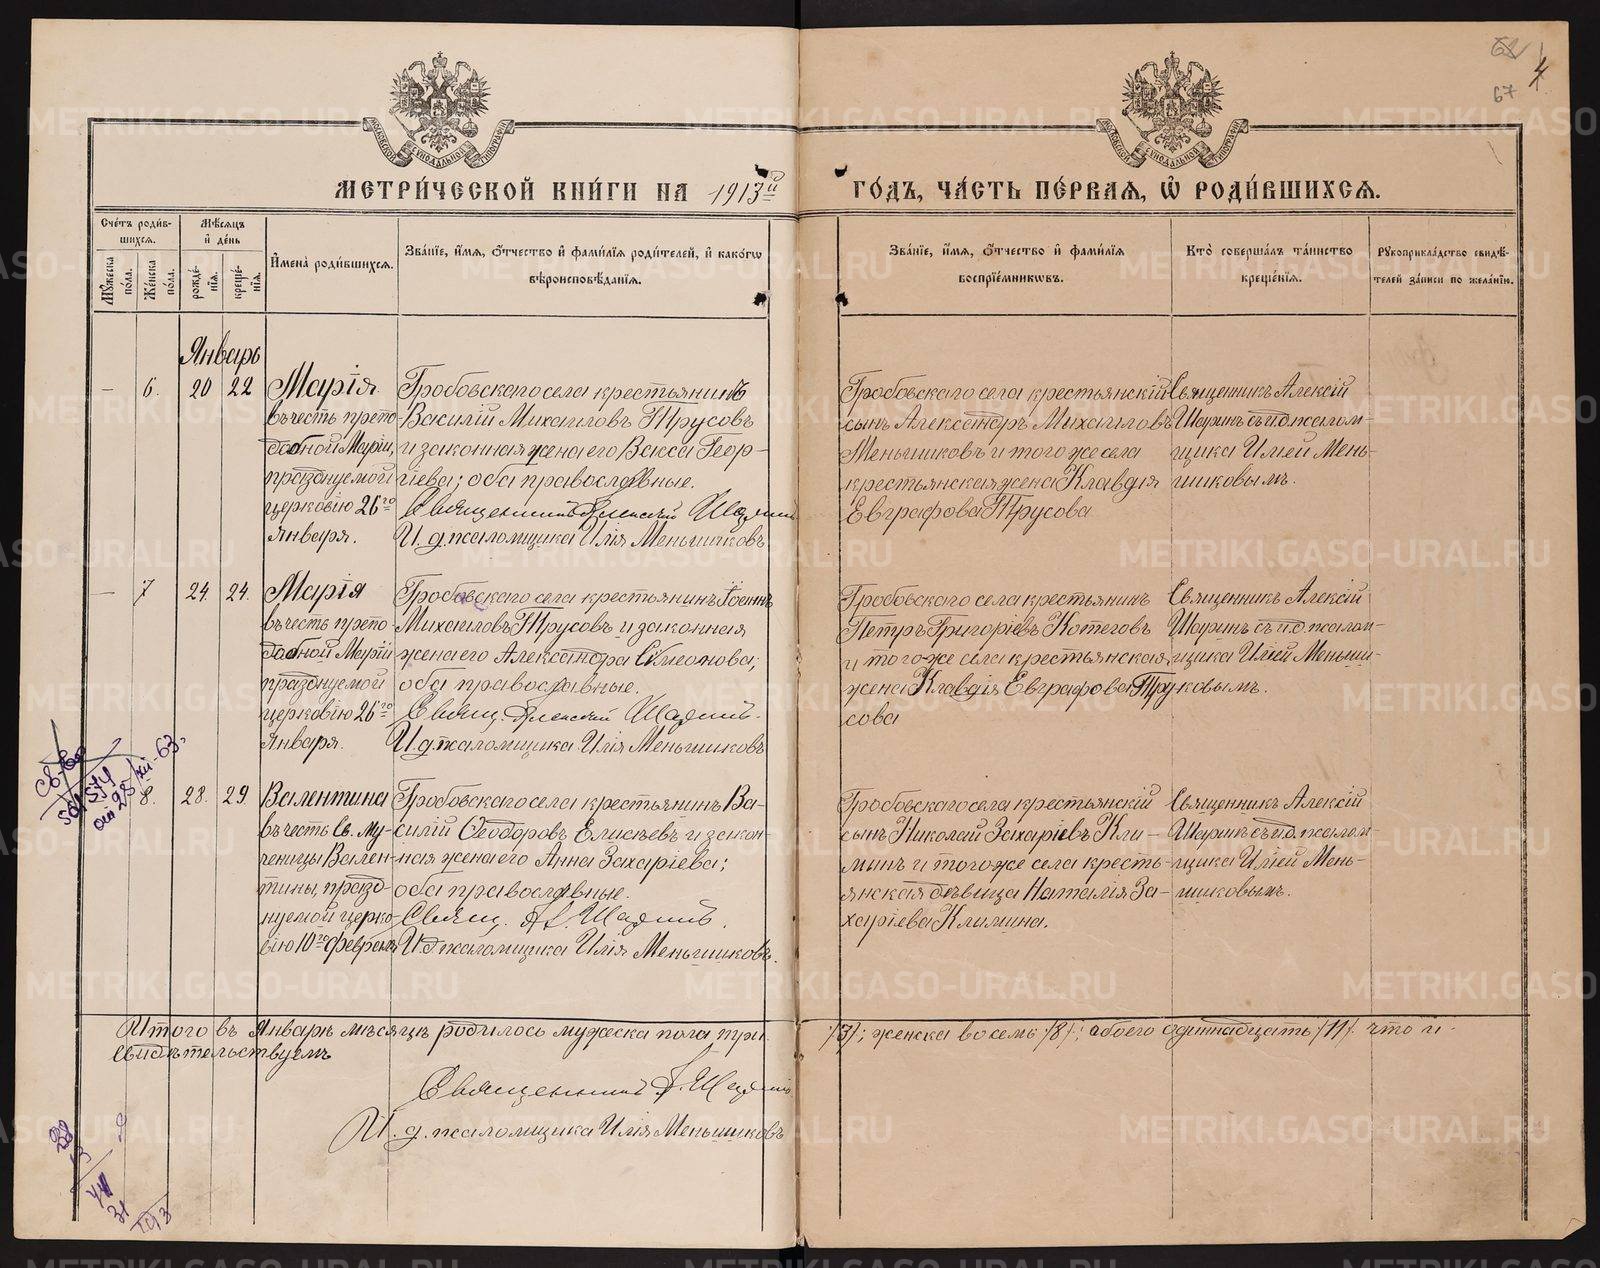 4
67
МОСКОВСКОЙ СѴНОДАЛЬНОЙ ТИПОГРАФІИ
МОСКОВСКОЙ СѴНОДАЛЬНОЙ ТИПОГРАФІИ
МЕТРИ́ЧЕСКОЙ КНИ́ГИ НА 1913й ГО́ДЪ, ЧА́СТЬ ПЕ́РВАЯ, Ѡ РОДИ́ВШИХСЯ.
Сче́тъ роди́в-
шихся.
Мѣ́сяцъ
и де́нь
Му́жеска
по́ла.
Же́нска
по́ла.
рожде́-
нія.
креще́-
нія.
Имена̀ роди́вшихся.
Зва́ніе, и́мя, о́тчество и фами́лія роди́телей, и како́гѡ
вѣроисповѣ́данія.
Зва́ніе, и́мя, о́тчество и фами́лія
воспріе́мникѡвъ.
Кто̀ соверша́лъ та́инство
креще́нія.
Рукоприкла́дство свидѣ́-
телей за́писи по жела́нію.
Январь
— 6. 20 22
Марія
въ честь препо-
добной Маріи,
празднуемой
церковію 26го
января.
Гробовскаго села крестьянинъ
Василій Михаиловъ Трусовъ
и законная жена его Васса Геор-
гіева; оба православные.
Священникъ Алексій Шаринъ
И. д. псаломщика Илія Меньшиковъ
Гробовскаго села крестьянскій
сынъ Александръ Михаиловъ
Меньшиковъ и того же села
крестьянская жена Клавдія
Евграфова Трусова
Священникъ Алексій
Шаринъ съ и.д. псалом-
щика Иліей Мень-
шиковымъ.
— 7 24. 24.
Марія
въ честь препо-
добной Маріи
празднуемой
церковію 26го
Января.
Гробовскаго села крестьянинъ Іоаннъ
Михаиловъ Трусовъ и законная
жена его Александра Симеонова;
оба православные.
Свящ. Алексій Шаринъ.
И. д. псаломщика Илія Меньшиковъ
Гробовскаго села крестьянинъ
Петръ Григоріевъ Котеговъ
и того же села крестьянская
жена Клавдія Евграфова Тру-
сова
Священникъ Алексій
Шаринъ съ и.д. псалом-
щика Иліей Меньши-
ковымъ.
8. 28. 29.
Валентина
въ честь Св. му-
ченицы Вален-
тины, празд-
нуемой церко-
вію 10го февраля
Гробовскаго села крестьянинъ Ва-
силій Ѳеодоровъ Елисѣевъ и закон-
ная жена его Анна Захаріева;
оба православные.
Свящ. Ал. Шаринъ.
И д псаломщика Илія Меньшиковъ.
Гробовскаго села крестьянскій
сынъ Николай Захаріевъ Кли-
минъ и того же села кресть-
янская дѣвица Наталія За-
харіева Климина.
Священникъ Алексій
Шаринъ съ и.д. псалом-
щика Иліей Мень-
шиковымъ.
Итого въ Январѣ мѣсяцѣ родилось мужеска пола три /3/; женска восемь /8/; обоего одиннадцать /11/. что и
свидѣтельствуемъ
Священникъ А. Шаринъ
И. д. псаломщика Илія Меньшиковъ
METRIKI.GASO-URAL.RU